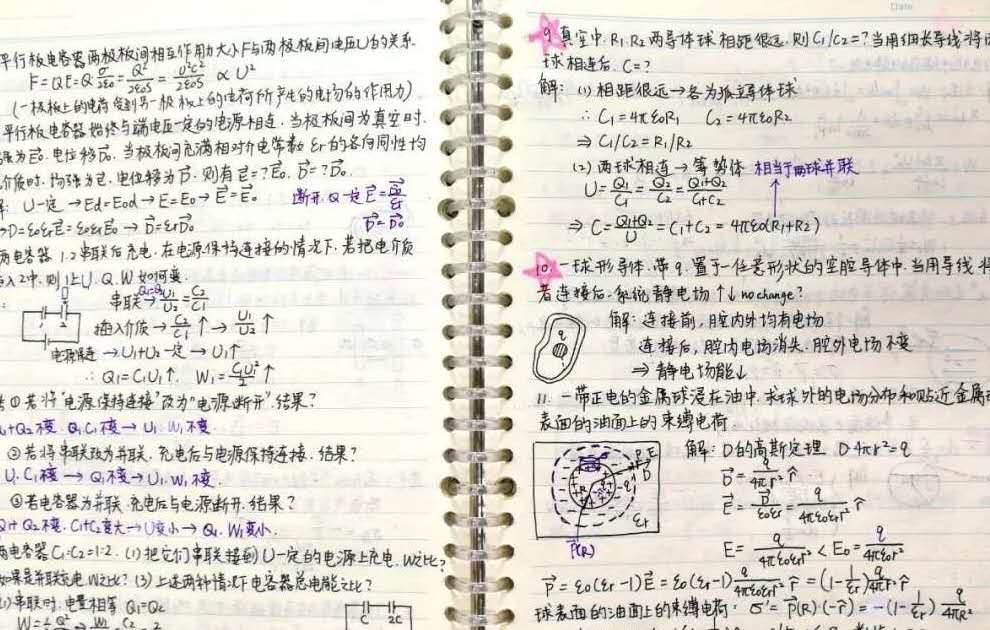 平行板电容器两极板间相互作用力大小F与两极板间电压U的关系.
F=QE=Q·σ/2ε₀=Q²/2ε₀S=U²C²/2ε₀S ∝ U²
(一极板上的电荷受到另一极板上的电荷所产生的电场的作用力)
平行板电容器始终与端电压一定的电源相连.当极板间为真空时.
强为E⃗₀.电位移D⃗₀.当极板间充满相对介电常数εr的各向同性均
介质时.场强为E⃗.电位移为D⃗.则有E⃗=?E⃗₀.D⃗=?D⃗₀.
U一定→Ed=E₀d→E=E₀→E⃗=E⃗₀ 断开.Q一定E⃗=E⃗₀/εr
→D=ε₀εrE⃗=ε₀εrE⃗₀→D⃗=εrD⃗₀ D⃗=D⃗₀
两电容器1.2串联后充电.在电源保持连接的情况下.若把电介质
入2中.则1上U.Q.W如何变
Q₁=Q₂
串联→U₁/U₂=C₂/C₁
1 2
插入介质→C₂/C₁↑→U₁/U₂↑
电源保连→U₁+U₂一定→U₁↑
∴Q₁=C₁U₁↑. W₁=C₁U₁²/2↑
①若将"电源保持连接"改为"电源断开".结果?
Q₁+Q₂不变.Q₁C₁不变→U₁.W₁不变
②若将串联改为并联.充电后与电源保持连接.结果?
U.C₁不变→Q₁不变→U₁.W₁不变.
③若电容器为并联.充电后与电源断开.结果?
Q₁+Q₂不变.C₁+C₂变大→U变小→Q₁.W₁变小.
两电容器C₁:C₂=1:2.(1)把它们串联接到U一定的电源上充电.W之比?
如果是并联充电.W之比?(3)上述两种情况下电容器总电能之比?
(1)串联时.电量相等Q₁=Q₂
C 2C
9.真空中.R₁.R₂两导体球相距很远.则C₁/C₂=?当用细长导线将
球相连后.C=?
解:(1)相距很远→各为孤立导体球
∴C₁=4πε₀R₁ C₂=4πε₀R₂
⇒C₁/C₂=R₁/R₂
(2)两球相连→等势体 相当于两球并联
U=Q₁/C₁=Q₂/C₂=(Q₁+Q₂)/(C₁+C₂)
⇒C=(Q₁+Q₂)/U=C₁+C₂=4πε₀(R₁+R₂)
10.一球形导体.带q.置于一任意形状的空腔导体中.当用导线将
者连接后.系统静电场↑↓no change?
q
解:连接前,腔内外均有电场
连接后,腔内电场消失.腔外电场不变
⇒静电场能↓
11.一带正电的金属球浸在油中.求球外的电场分布和贴近金属
表面的油面上的束缚电荷
P E
D
R
εr
P⃗(R)
解:D的高斯定理 D·4πr²=q
D⃗=q/4πr² r̂
E⃗=D⃗/ε₀εr=q/4πε₀εrr² r̂
E=q/4πε₀εrr²<E₀=q/4πε₀r²
P⃗=ε₀(εr-1)E⃗=ε₀(εr-1)q/4πε₀εrr² r̂=(1-1/εr)q/4πr²·r̂
球表面的油面上的束缚电荷:σ'=P⃗(R)·(-r̂)=-(1-1/εr)q/4πR²